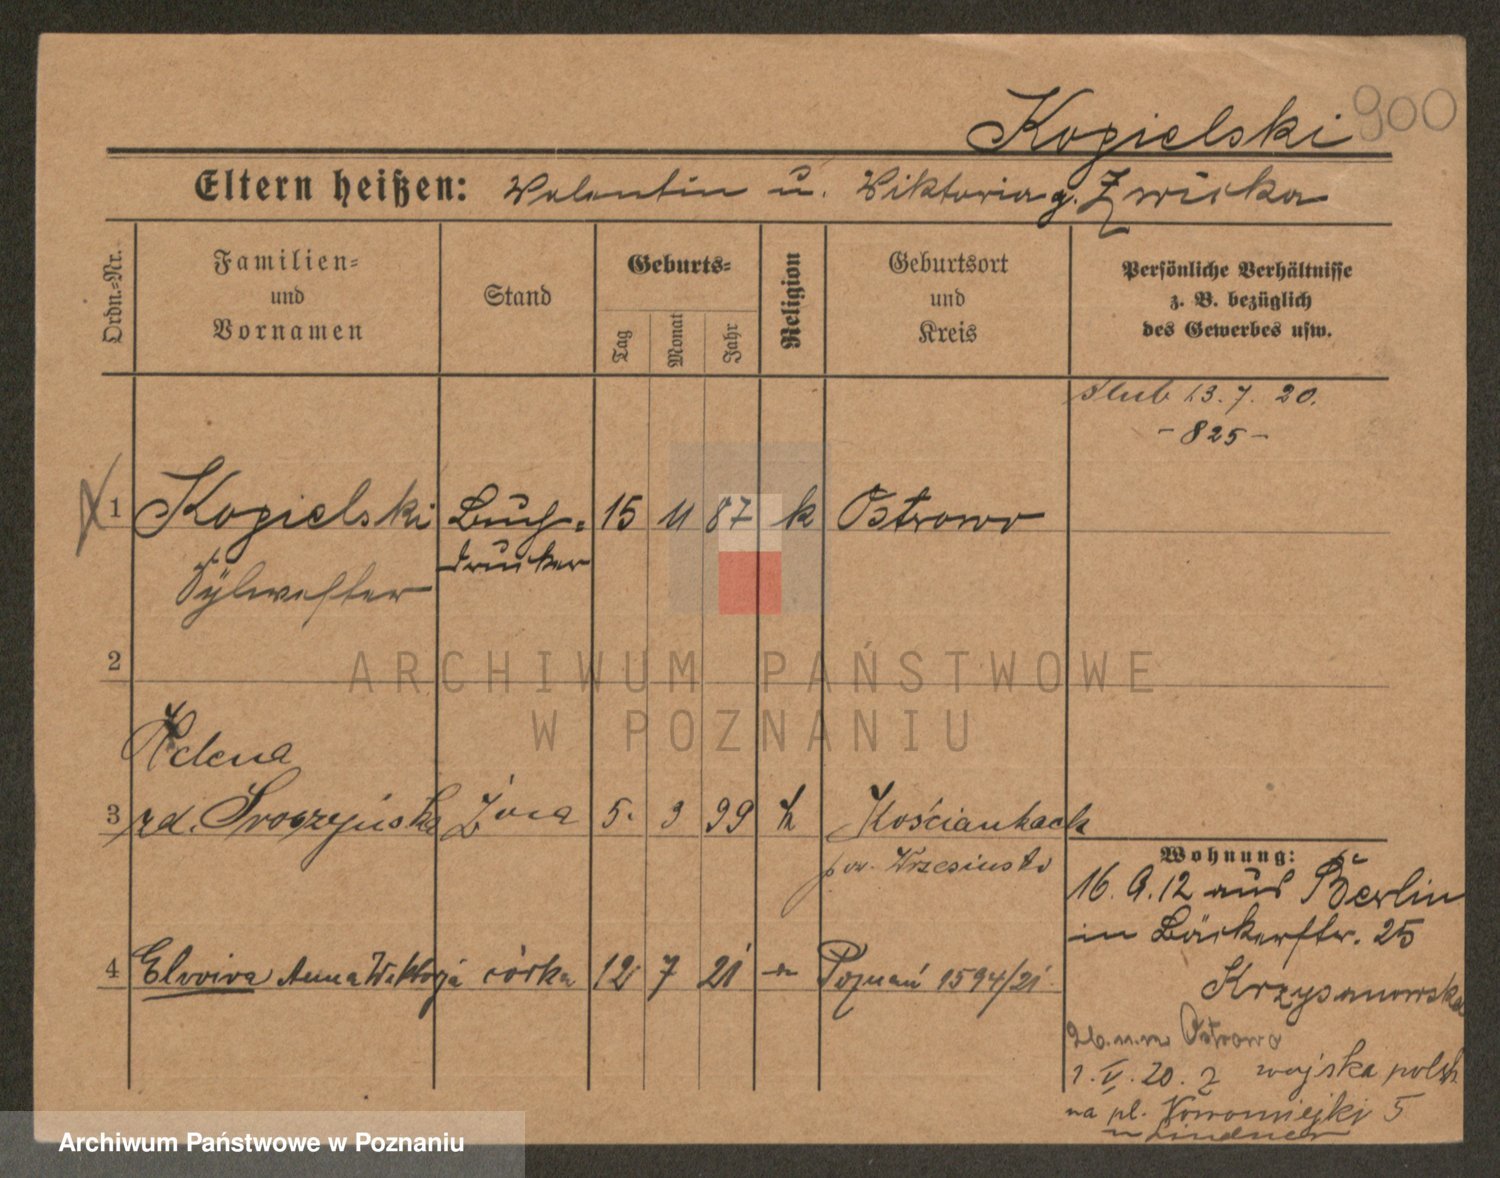 Kogielski 900
Eltern heißen: Valentin u. Viktoria g. Zwicka
Ordn.-Nr.
Familien-
und
Vornamen
Stand
Geburts-
Tag
Monat
Jahr
Religion
Geburtsort
und
Kreis
Persönliche Verhältnisse
z. B. bezüglich
des Gewerbes usw.
ślub 13. 7. 20.
- 825 -
1 Kogielski Buch- 15 11 87 k Ostrowo
drucker
Sylwester
2
ARCHIWUM PAŃSTWOWE
W POZNANIU
Helena
3 żona 5. 3 99 k
pow.
Wohnung:
16. 9. 12 aus Berlin
in Bäckerstr. 25
4 Anna Wiktorja córka 12 7 21 Poznań 1594/21
Ostrowo
1. V. 20. z wojska polsk
na pl. Nowomiejski 5
Archiwum Państwowe w Poznaniu